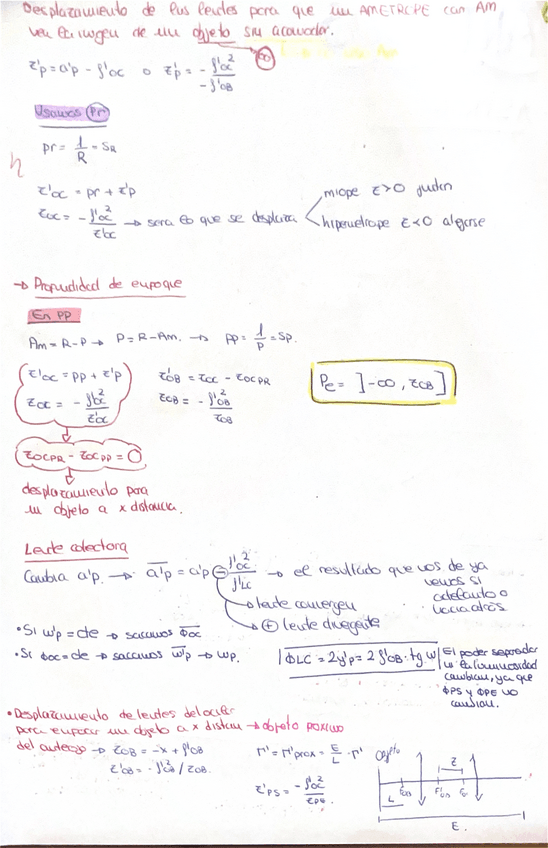 Desplazamiento de las lentes para que un AMETROPE con AM
vea la imagen de un objeto sin acomodar.
∞
z'p = a'p - f'oc o z'p = - f'oc² / -f'OB
Usamos Pr
pr = 1/R = SR
z'oc = pr + z'p
zoc = - f'oc² / z'oc → sera lo que se desplaza
miope z>0 juntan
hipermetrope z<0 alejarse
→ Profundidad de enfoque
En PP
Am = R-P → P = R-Am. → pp = 1/P = Sp.
z'oc = pp + z'p
zoc = - f'oc² / z'oc
z'OB = zoc - zocPR
zOB = - f'OB² / z'OB
Pe = ]-∞, zOB]
zocPR - zocPP = 0
desplazamiento para
un objeto a x distancia.
Lente colectora
Cambia a'p. → a'p = a'p ⊖ f'oc² / f'LC → el resultado que nos de ya
vemos si
adelante o
hacia atrás
→ lente convergen
→ ⊕ lente divergente
• Si w'p = cte → sacamos Φoc
• Si Φoc = cte → sacamos w'p → wp.
ΦLC = 2y'p = 2 f'OB · tg w
El poder separador
y la luminosidad
cambian, ya que
ΦPS y ΦPE no
cambian.
• Desplazamiento de lentes del ocular
para enfocar un objeto a x distan → objeto proximo
del anteojo → zOB = -x + f'OB
z'OB = - f'OB² / zOB.
Γ' = Γ'prox = E/L · Γ'
z'PS = - f'oc² / zPE.
z
L
E.